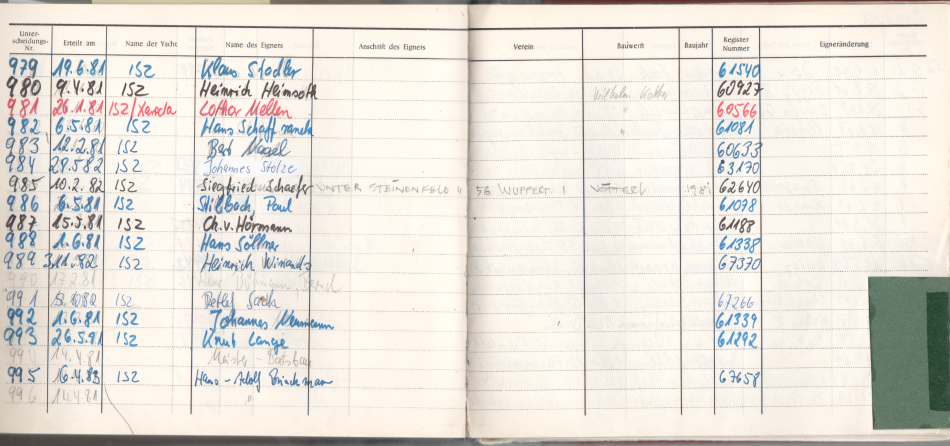 Unter-scheidungs-Nr. Erteilt am Name der Yacht Name des Eigners Anschrift des Eigners Verein Bauwerft Baujahr Register Nummer Eigneränderung
979 19.6.81 ISZ Klaus Stadler 61540
980 9.4.81 ISZ Heinrich Heimsoth Wilhelm 60927
981 26.1.81 ISZ/ Lothar Mellen " 60566
982 6.5.81 ISZ Hans " 61081
983 12.2.81 ISZ Bert Nagel 60633
984 28.5.82 ISZ Johannes Stolze 63170
985 10.2.82 ISZ Siegfried Schaefer UNTER STEINENFELD 56 WUPPERT. 1 198 62640
986 6.5.81 ISZ Stillbach, Paul 61078
987 15.5.81 ISZ Ch. v. Hörmann 61188
988 1.6.81 ISZ Hans Söllner 61338
989 3.11.82 ISZ Heinrich Winands 67370
990 17.2.81
991 ISZ Detlef 67266
992 1.6.81 ISZ Johannes Neumann 61339
993 26.5.81 ISZ Knut Lange 61292
994 14.4.81
995 16.4.83 ISZ Hans-Adolf Brinckmann 67658
996 14.4.81 "